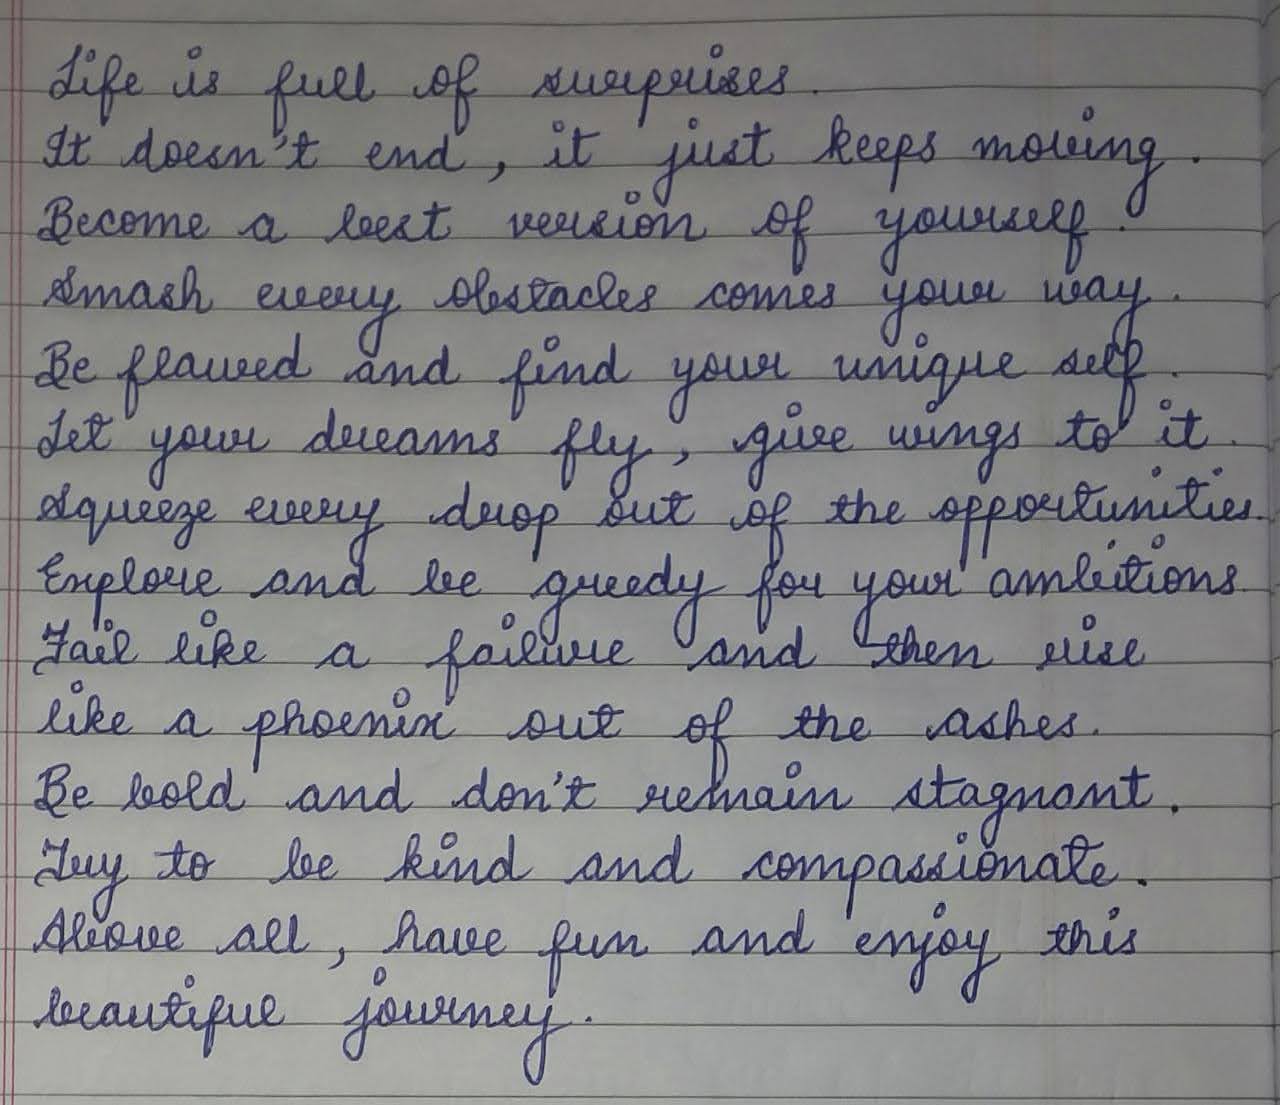 Life is full of surprises.
It doesn't end, it just keeps moving.
Become a best version of yourself.
Smash every obstacles comes your way.
Be flawed and find your unique self.
Let your dreams fly, give wings to it.
Squeeze every drop out of the opportunities.
Explore and be greedy for your ambitions.
Fail like a failure and then rise
like a phoenix out of the ashes.
Be bold and don't remain stagnant.
Try to be kind and compassionate.
Above all, have fun and enjoy this
beautiful journey.